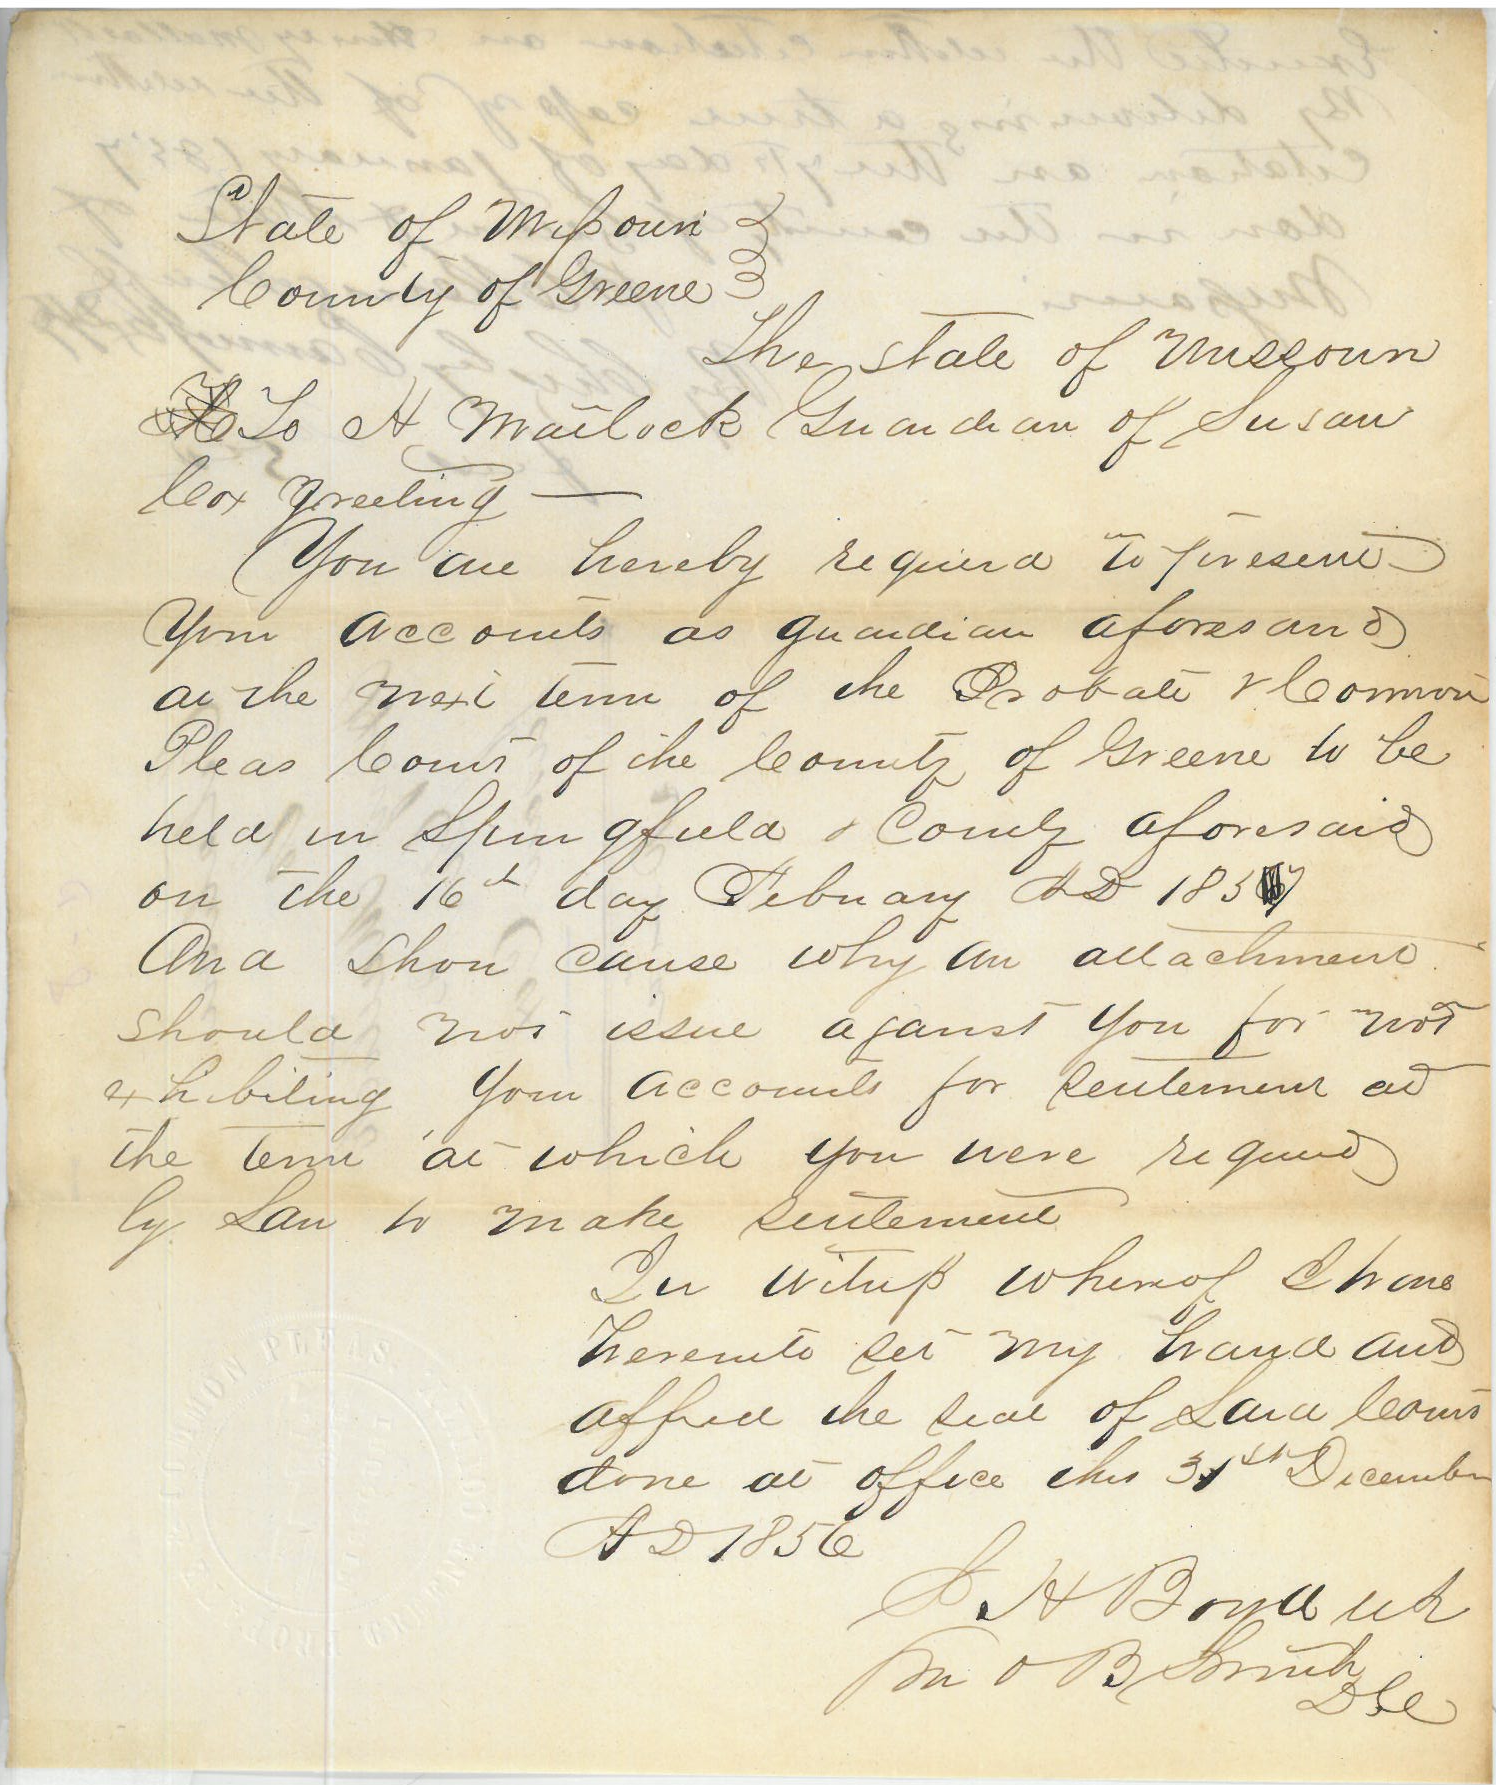 State of Missouri
County of Greene
The State of Missouri
To H Matlock Guardian of Susan
Cox Greeting —
You are hereby required to present
Your accounts as guardian aforesaid
at the next term of the Probate & Common
Pleas Court of the County of Greene to be
held in Springfield & County aforesaid
on the 16th day February AD 1857
And Show cause why an attachment
should not issue against you for not
exhibiting Your accounts for settlement at
the term at which you were required
by Law to make settlement
In witness whereof I have
hereunto set my hand and
affixed the seal of Said Court
done at office this 31st December
AD 1856
H Boyd clk
O B Smith
DC
COMMON PLEAS